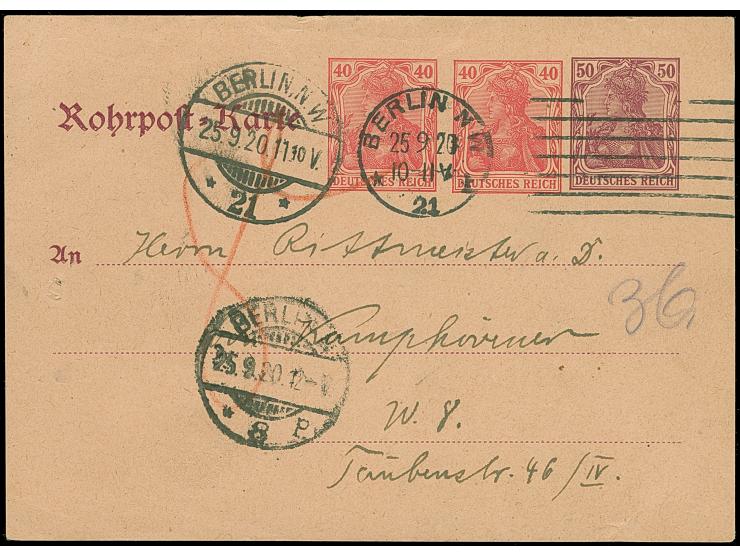 40 40 40 40 50 50
DEUTSCHES REICH DEUTSCHES REICH DEUTSCHES REICH
Rohrpost-Karte
BERLIN N W
25.9.20.11 10 V.
* 21 *
BERLIN N W
25 9 20
* 10-11 V *
21
An Herrn Rittmeister a. D.
36
BERLIN
25.9.20.12-V.
* 8 P.
W. 8.
Taubenstr. 46/IV.